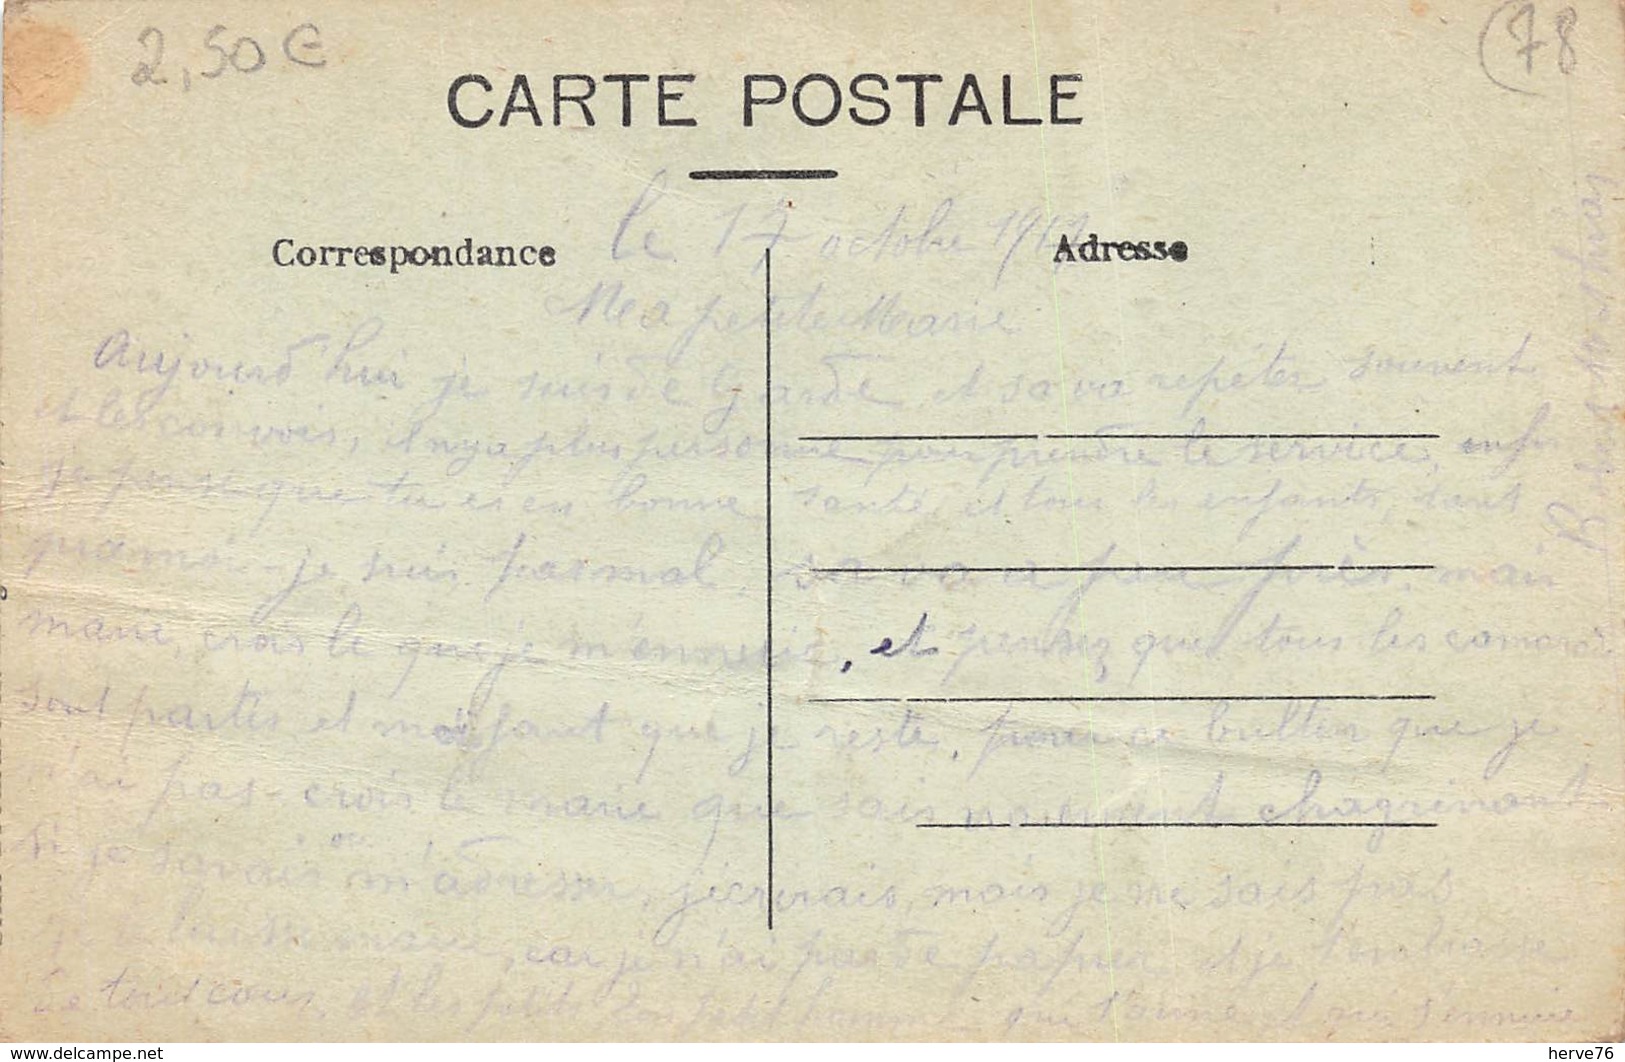 2,50 €
(78
CARTE POSTALE
Correspondance
Adresse
le 17 octobre 1917
Ma petite Marie
Aujourd'hui je suis de Garde et sa va repéter souvent
et les convois, il n'y a plus personne pour prendre le service, enfin
je pense que tu es en bonne santé et tous les enfants, tant
qu'a moi je suis pas mal, sa va a peu près, mais
marie, crois le que je m'ennuie, et pensez que tous les camarades
sont partis et moi faut que je reste, pour ce bultin que je
n'ai pas crois le marie que sais vraiment chagrinant
si je savais ou m'adresser, j'écrirais, mais je ne sais pas
je laisse marie, car je n'ai pas de papier et je t'embrasse
de tout cœur et les petits Ton petit homme qui t'aime et qui s'ennuie
herve76
www.delcampe.net